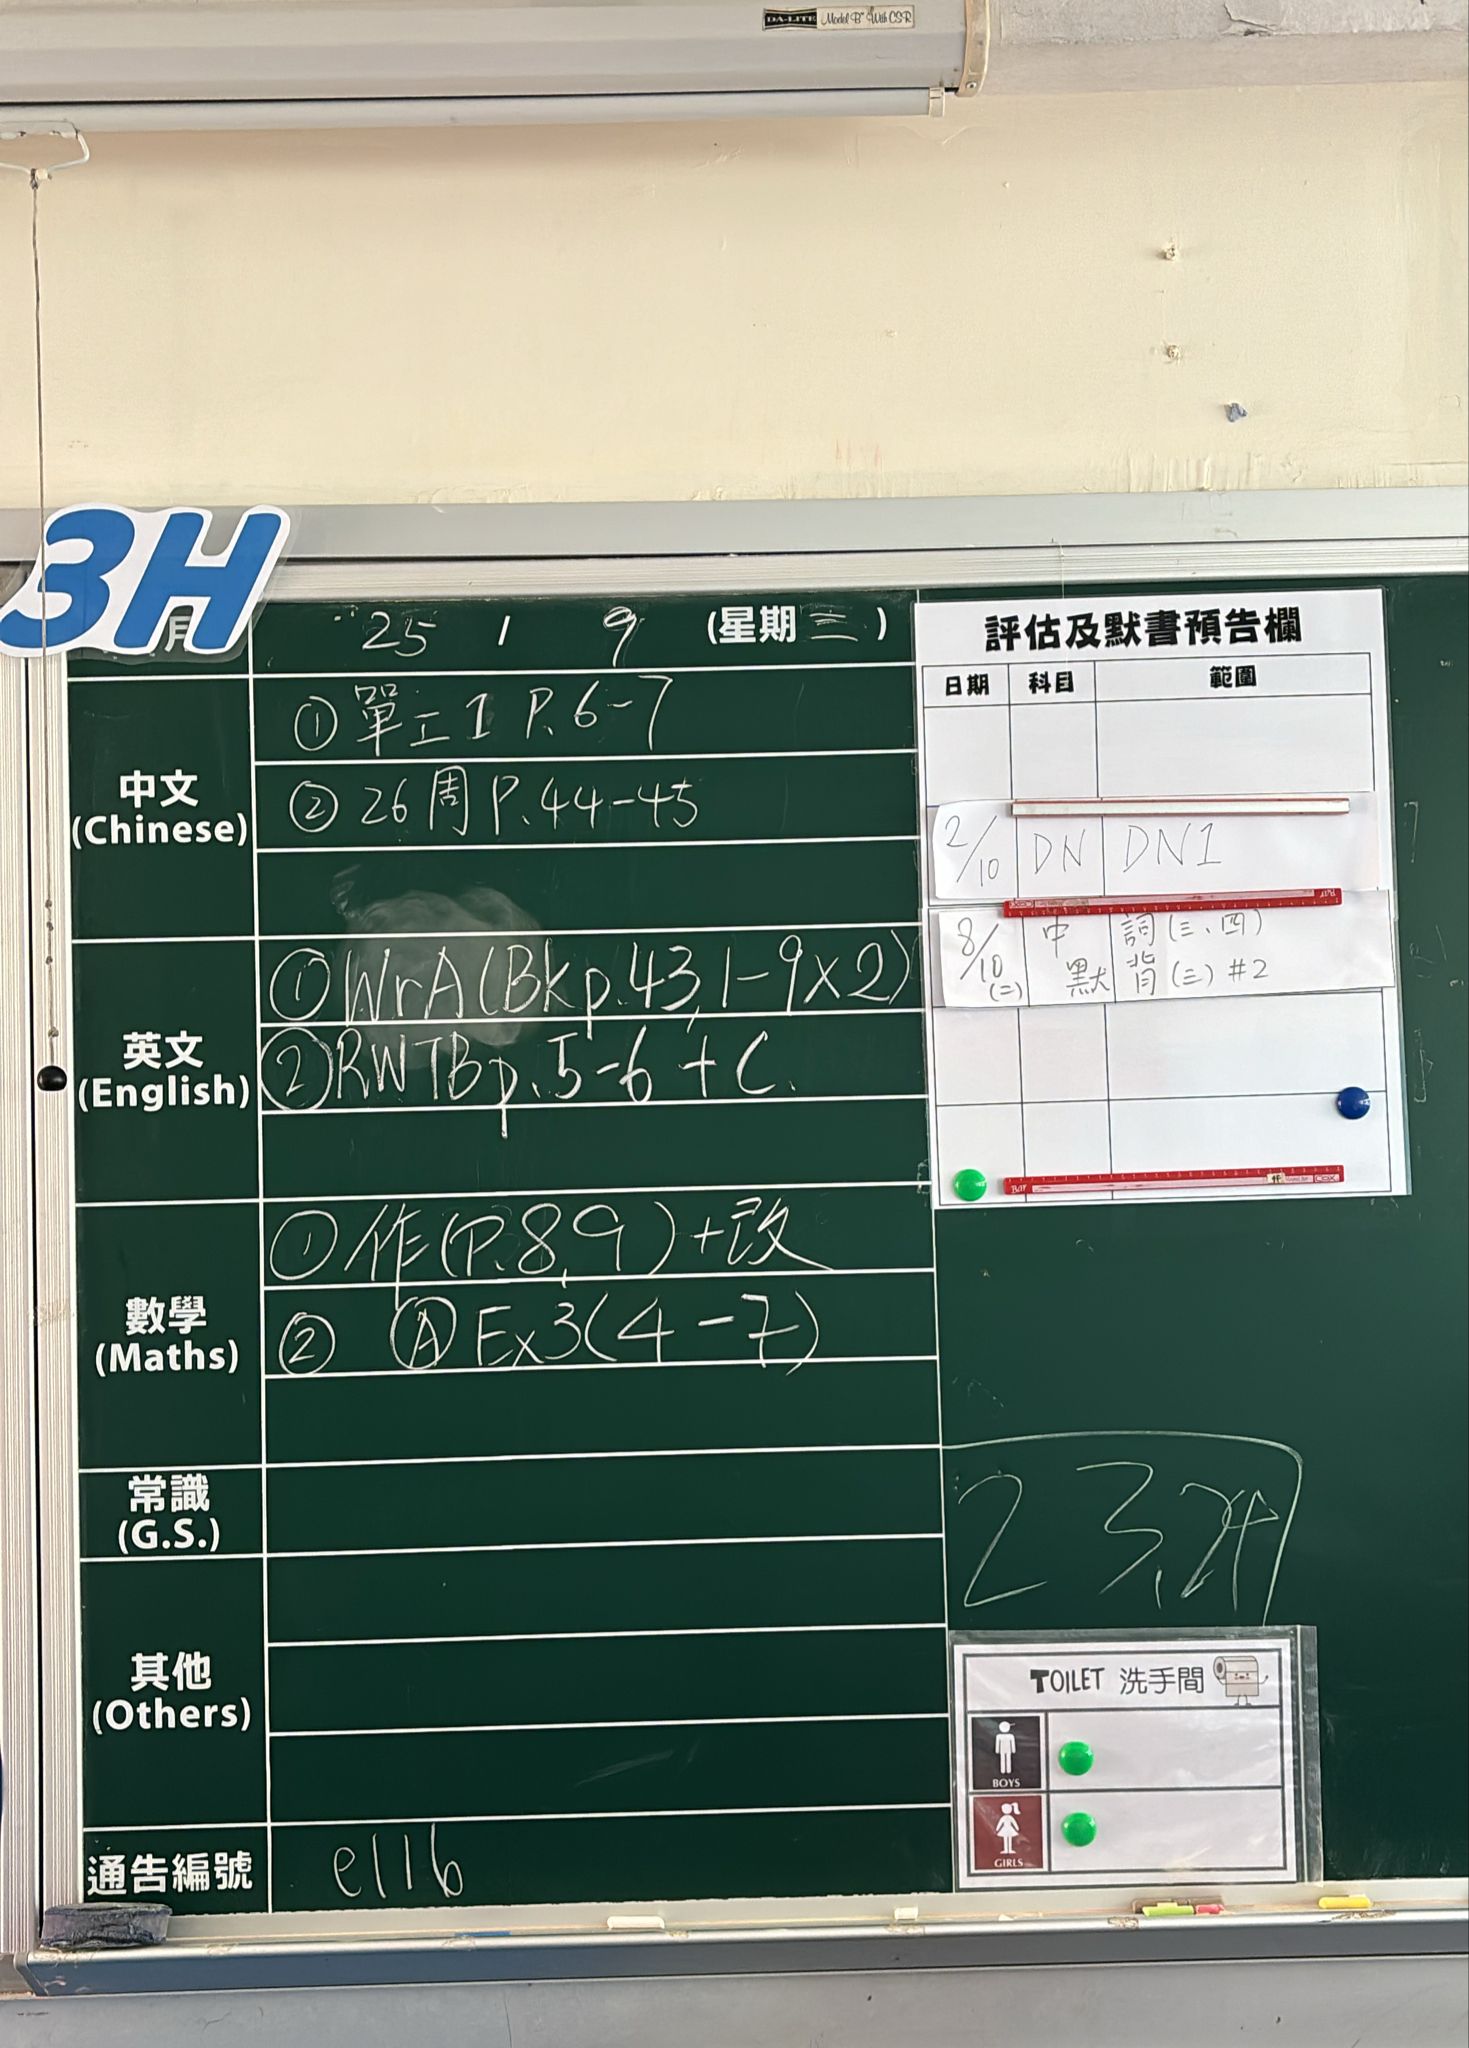 DA-LITE Model B™ With CSR
3H
月 25 / 9 (星期三)
中文
(Chinese)
① 單工1 P.6-7
② 26周 P.44-45
英文
(English)
① WrA (Bk p.43, 1-9×2)
② RWTB p.5-6 + C.
數學
(Maths)
① 作(P.8,9)+改
② Ⓐ Ex3(4-7)
常識
(G.S.)
其他
(Others)
通告編號 e116
評估及默書預告欄
日期 科目 範圍
2/10 DN DN1
8/10 (二) 中默 詞(三、四)
背(三) #2
23,24
TOILET 洗手間
BOYS
GIRLS